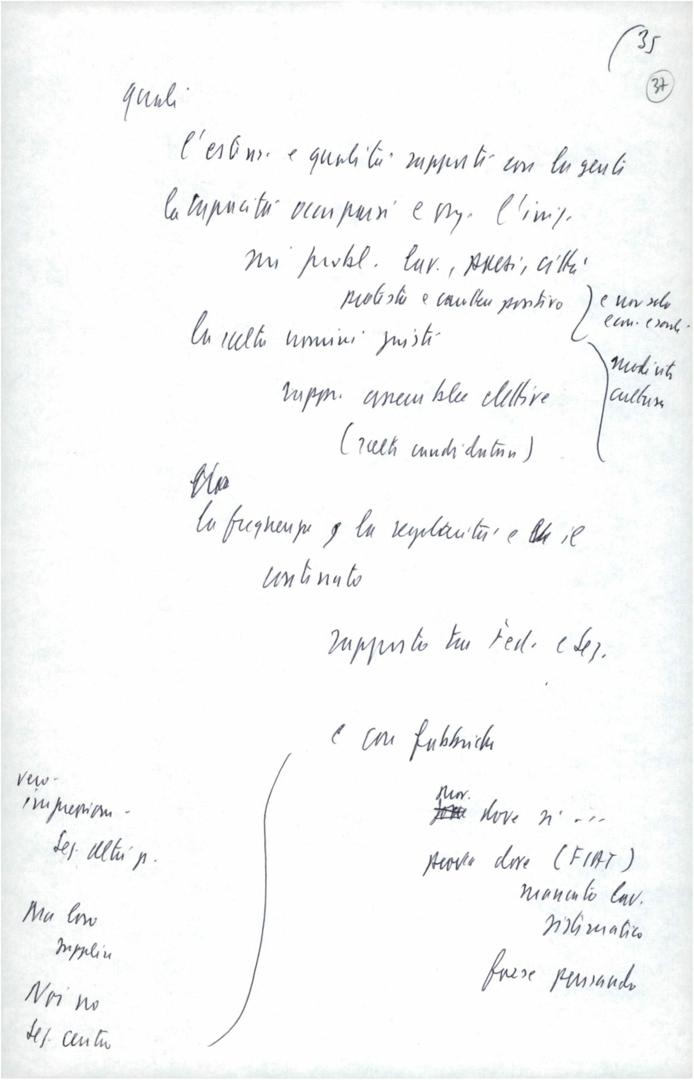 35
37
quali
l'estens. e qualità rapporti con la gente
la capacità occuparsi e org. l'iniz.
sui probl. lav., paesi, città
protesta e carattere positivo
e non solo
la scelta uomini giusti
modernità
cultura
rappr. assemblee elettive
(scelta candidature)
la frequenza, la regolarità e il
continuato
rapporto tra Fed. e Sez.
e con fabbriche
vero-
impression-
Sez. altri p.
prov.
dove si ...
prova dove (FIAT)
mancato lav.
sistematico
forse pensando
Ma loro
Noi no
Sez. centro